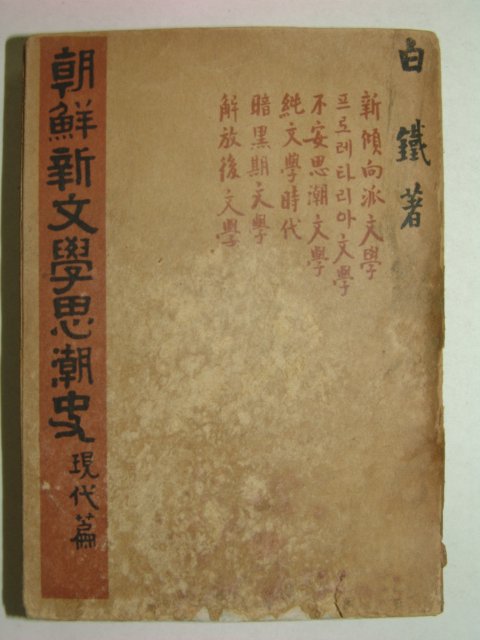 白鐵著
新傾向派文學
프로레타리아文學
不安思潮文學
純文學時代
暗黑期文學
解放後文學
朝鮮新文學思潮史 現代篇